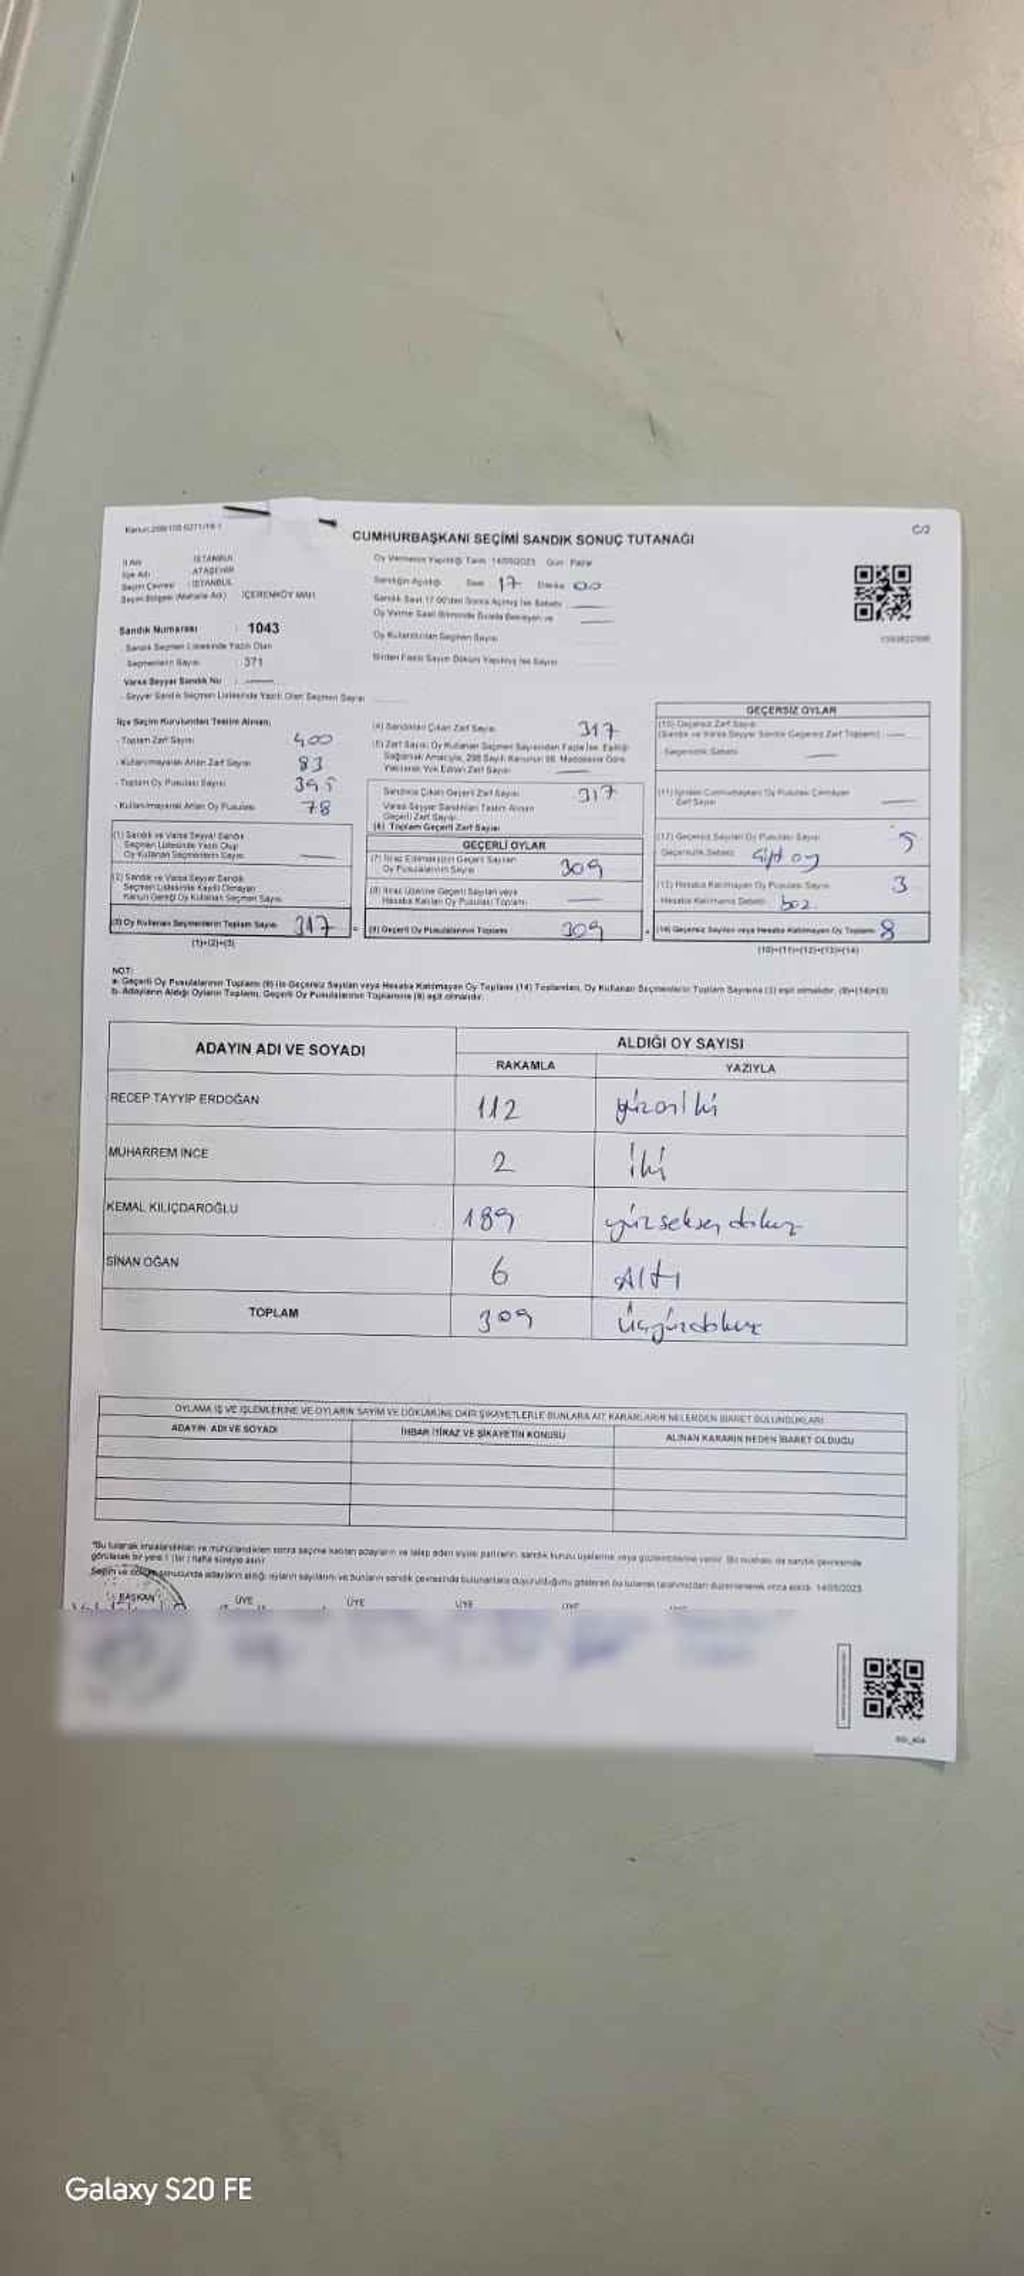 Kanun:298/105 6271/19 1
C/2
CUMHURBAŞKANI SEÇİMİ SANDIK SONUÇ TUTANAĞI
İl Adı : İSTANBUL
İlçe Adı : ATAŞEHİR
Seçim Çevresi : İSTANBUL
Seçim Bölgesi (Mahalle Adı) : İÇERENKÖY MAH.
Oy Vermenin Yapıldığı Tarih: 14/05/2023 Gün: Pazar
Sandığın Açıldığı Saat 17 Dakika 00
Sandık Saat 17.00'den Sonra Açılmış İse Sebebi
Oy Verme Saati Bitiminde Sırada Bekleyen ve
Oy Kullandırılan Seçmen Sayısı
Birden Fazla Sayım Döküm Yapılmış İse Sayısı
Sandık Numarası : 1043
Sandık Seçmen Listesinde Yazılı Olan
Seçmenlerin Sayısı : 371
Varsa Seyyar Sandık No :
- Seyyar Sandık Seçmen Listesinde Yazılı Olan Seçmen Sayısı
İlçe Seçim Kurulundan Teslim Alınan;
- Toplam Zarf Sayısı 400
- Kullanılmayarak Artan Zarf Sayısı 83
- Toplam Oy Pusulası Sayısı 395
- Kullanılmayarak Artan Oy Pusulası 78
(1) Sandık ve Varsa Seyyar Sandık
Seçmen Listesinde Yazılı Olup
Oy Kullanan Seçmenlerin Sayısı
(2) Sandık ve Varsa Seyyar Sandık
Seçmen Listesinde Kayıtlı Olmayan
Kanun Gereği Oy Kullanan Seçmen Sayısı
(3) Oy Kullanan Seçmenlerin Toplam Sayısı 317
(1)+(2)=(3)
(4) Sandıktan Çıkan Zarf Sayısı 317
(5) Zarf Sayısı Oy Kullanan Seçmen Sayısından Fazla İse, Eşitliği
Sağlamak Amacıyla, 298 Sayılı Kanunun 98. Maddesine Göre
Yakılarak Yok Edilen Zarf Sayısı
Sandıkta Çıkan Geçerli Zarf Sayısı 317
Varsa Seyyar Sandıktan Teslim Alınan
Geçerli Zarf Sayısı
(6) Toplam Geçerli Zarf Sayısı
GEÇERLİ OYLAR
(7) İtiraz Edilmeksizin Geçerli Sayılan
Oy Pusulalarının Sayısı 309
(8) İtiraz Üzerine Geçerli Sayılan veya
Hesaba Katılan Oy Pusulası Toplamı
(9) Geçerli Oy Pusulalarının Toplamı 309
GEÇERSİZ OYLAR
(10) Geçersiz Zarf Sayısı
(Sandık ve Varsa Seyyar Sandık Geçersiz Zarf Toplamı)
Geçersizlik Sebebi
(11) İçinden Cumhurbaşkanı Oy Pusulası Çıkmayan
Zarf Sayısı
(12) Geçersiz Sayılan Oy Pusulası Sayısı 5
Geçersizlik Sebebi
(13) Hesaba Katılmayan Oy Pusulası Sayısı 3
Hesaba Katılmama Sebebi boz
(14) Geçersiz Sayılan veya Hesaba Katılmayan Oy Toplamı 8
(10)+(11)+(12)+(13)=(14)
NOT:
a- Geçerli Oy Pusulalarının Toplamı (9) ile Geçersiz Sayılan veya Hesaba Katılmayan Oy Toplamı (14) Toplamları, Oy Kullanan Seçmenlerin Toplam Sayısına (3) eşit olmalıdır. (9)+(14)=(3)
b- Adayların Aldığı Oyların Toplamı, Geçerli Oy Pusulalarının Toplamına (9) eşit olmalıdır.
ADAYIN ADI VE SOYADI
ALDIĞI OY SAYISI
RAKAMLA YAZIYLA
RECEP TAYYİP ERDOĞAN 112 yüzoniki
MUHARREM İNCE 2 İki
KEMAL KILIÇDAROĞLU 189 yüzseksendokuz
SİNAN OĞAN 6 Altı
TOPLAM 309 Üçyüzdokuz
OYLAMA İŞ VE İŞLEMLERİNE VE OYLARIN SAYIM VE DÖKÜMÜNE DAİR ŞİKAYETLERLE BUNLARA AİT KARARLARIN NELERDEN İBARET BULUNDUKLARI
ADAYIN ADI VE SOYADI İHBAR İTİRAZ VE ŞİKAYETİN KONUSU ALINAN KARARIN NEDEN İBARET OLDUĞU
*Bu tutanak imzalandıktan ve mühürlendikten sonra seçime katılan adayların ve talep eden siyasi partilerin, sandık kurulu üyelerine veya gözlemcilerine verilir. Bu nüshası da sandık çevresinde
görülecek bir yere 1 (bir) hafta süreyle asılır.
Seçim ve döküm sonucunda adayların aldığı oyların sayılarını ve bunların sandık çevresinde bulunanlara duyurulduğunu gösteren bu tutanak tarafımızdan düzenlenerek imza edildi. 14/05/2023
BAŞKAN ÜYE ÜYE ÜYE ÜYE
Galaxy S20 FE